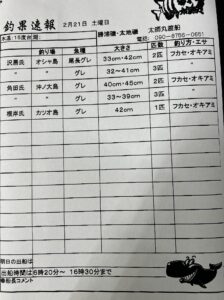 釣果速報 2月21日 土曜日
水温:16度前後
勝浦磯・太地磯 太郎丸渡船
電話:090-8756-0651
釣り場 魚種 大きさ 匹数 釣り方・エサ
沢居氏 オシャ島 尾長グレ 33cm・42cm 2匹 フカセ・オキアミ
〃 〃 グレ 32~41cm 4匹 〃
角田氏 沖ノ大島 グレ 40cm・45cm 2匹 フカセ・オキアミ
〃 〃 グレ 33~39cm 3匹 〃
根岸氏 カツオ島 グレ 42cm 1匹 フカセ・オキアミ
明日の出船は
出船時間は6時20分~ 16時30分まで
乗船長コメント